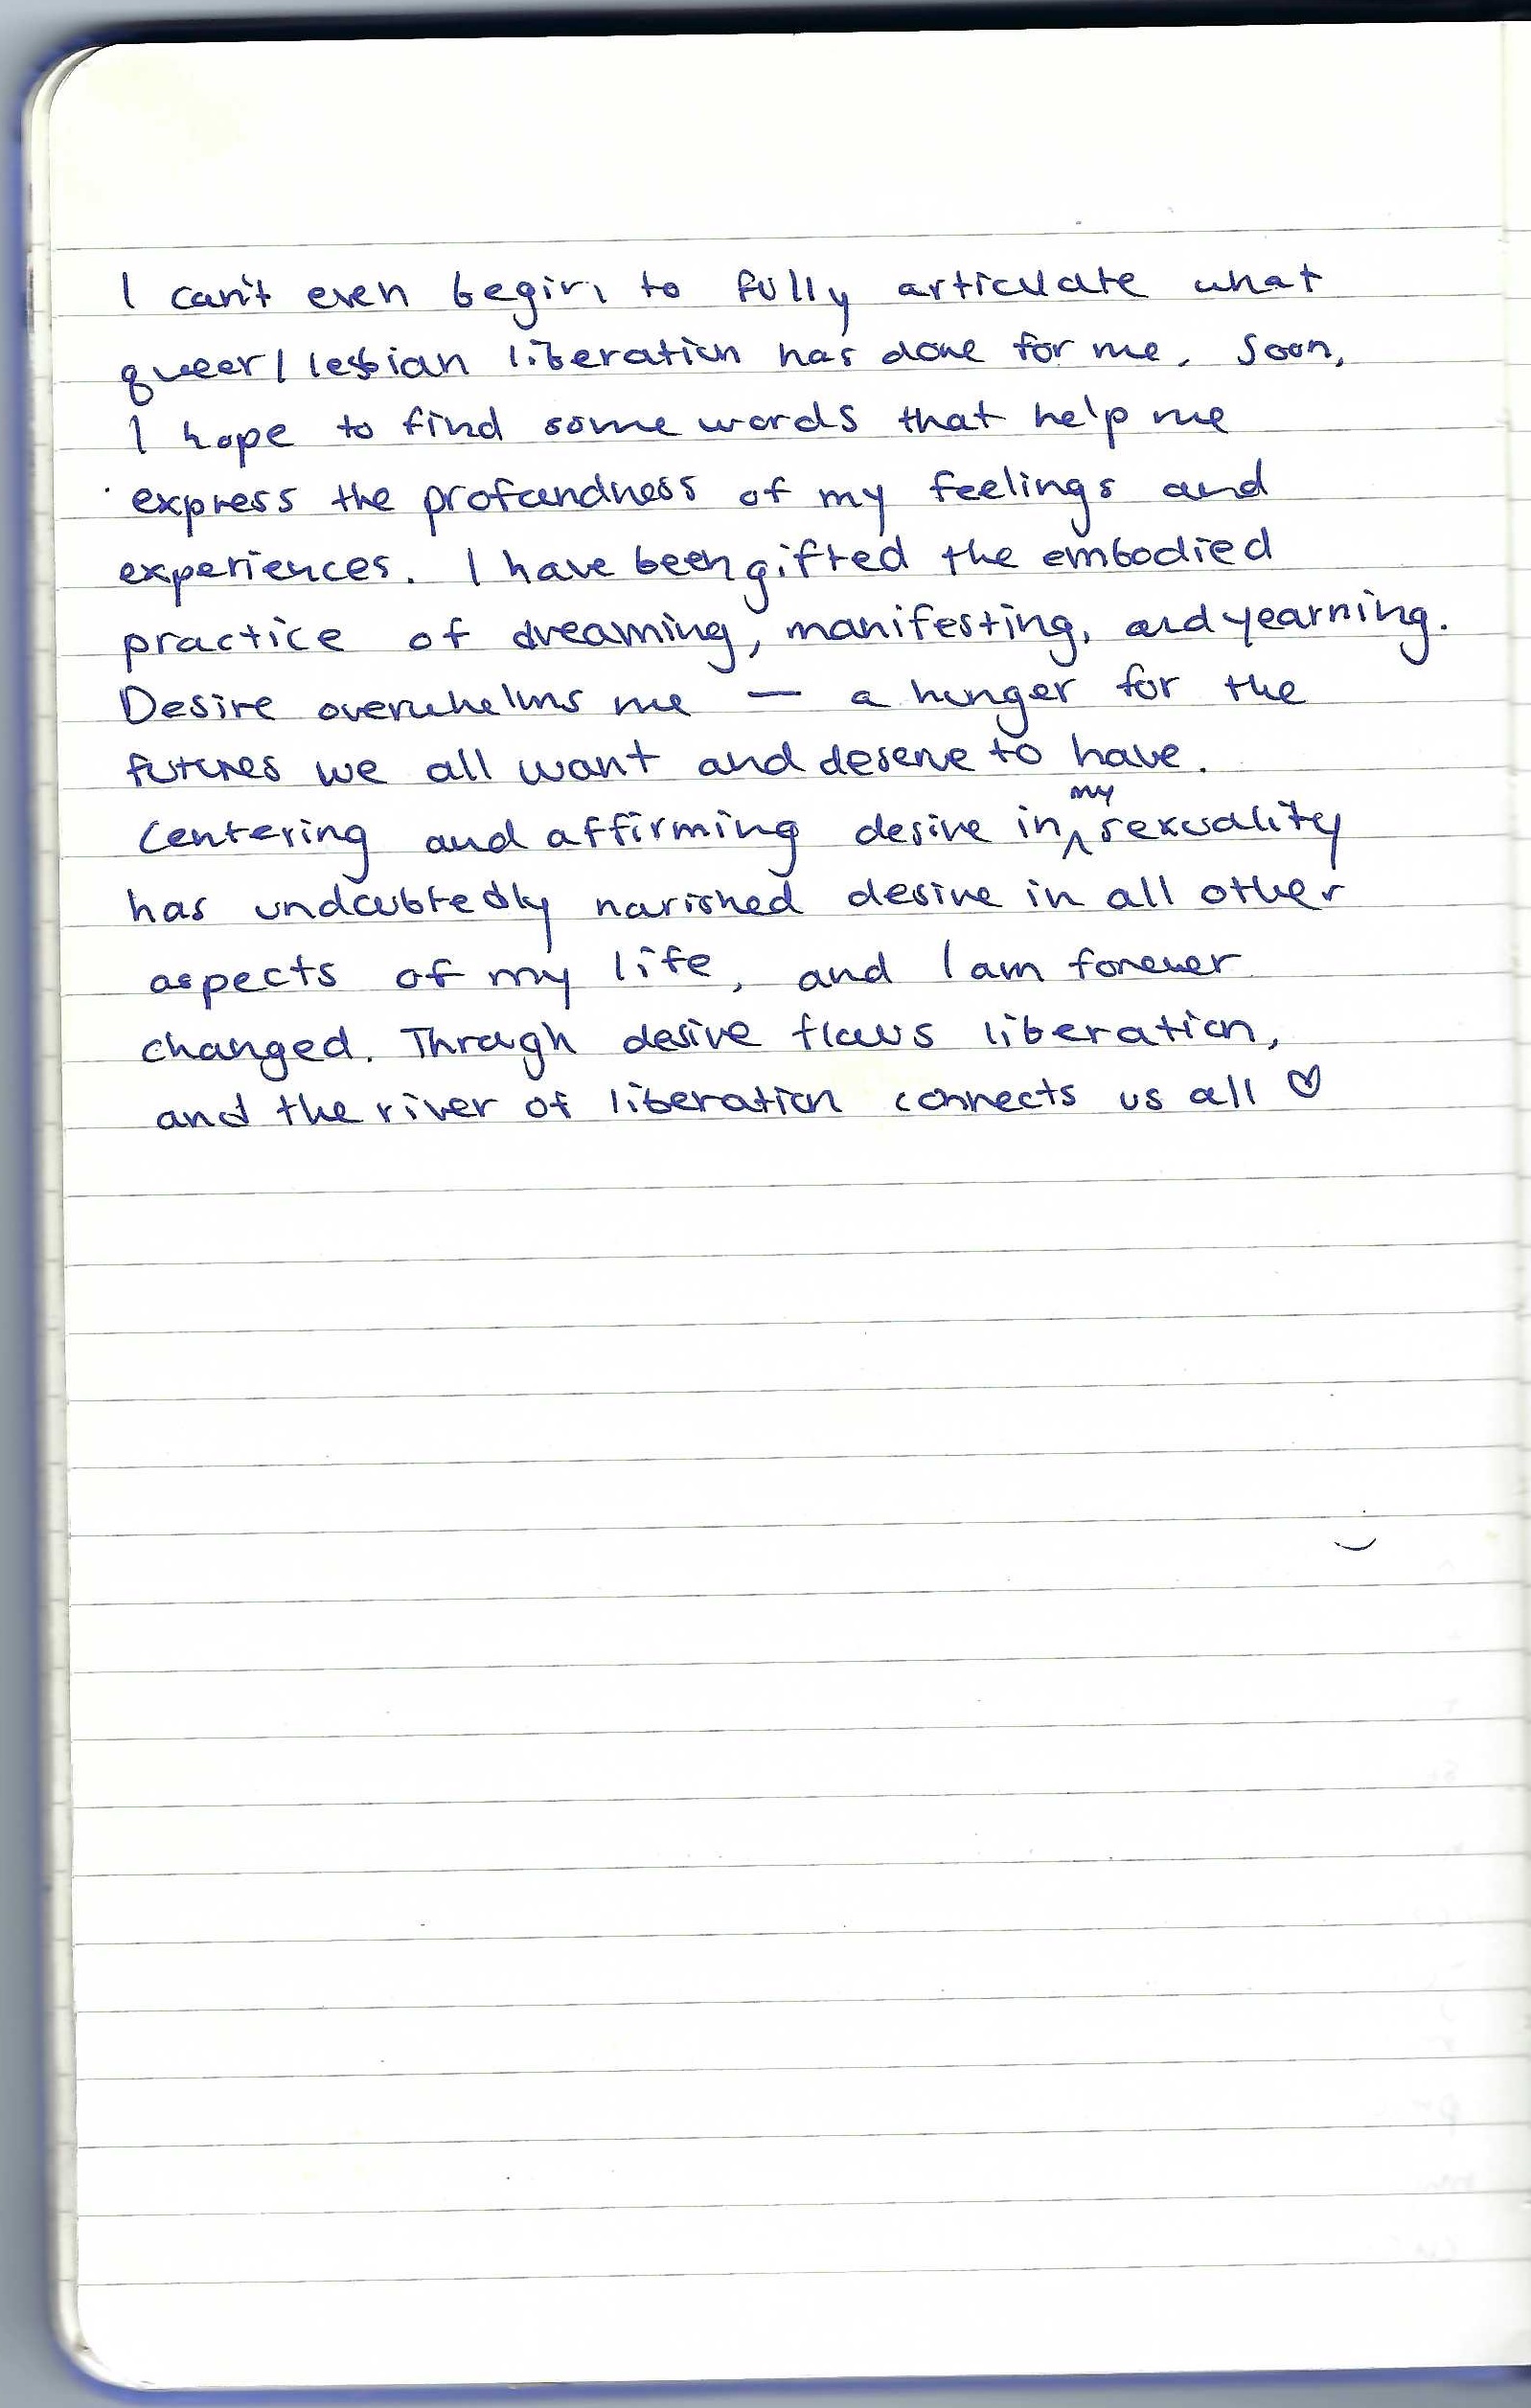 I can't even begin to fully articulate what
queer/lesbian liberation has done for me. Soon,
I hope to find some words that help me
express the profoundness of my feelings and
experiences. I have been gifted the embodied
practice of dreaming, manifesting, and yearning.
Desire overwhelms me — a hunger for the
futures we all want and deserve to have.
Centering and affirming desire in my sexuality
has undoubtedly nourished desire in all other
aspects of my life, and I am forever
changed. Through desire flows liberation,
and the river of liberation connects us all ♡